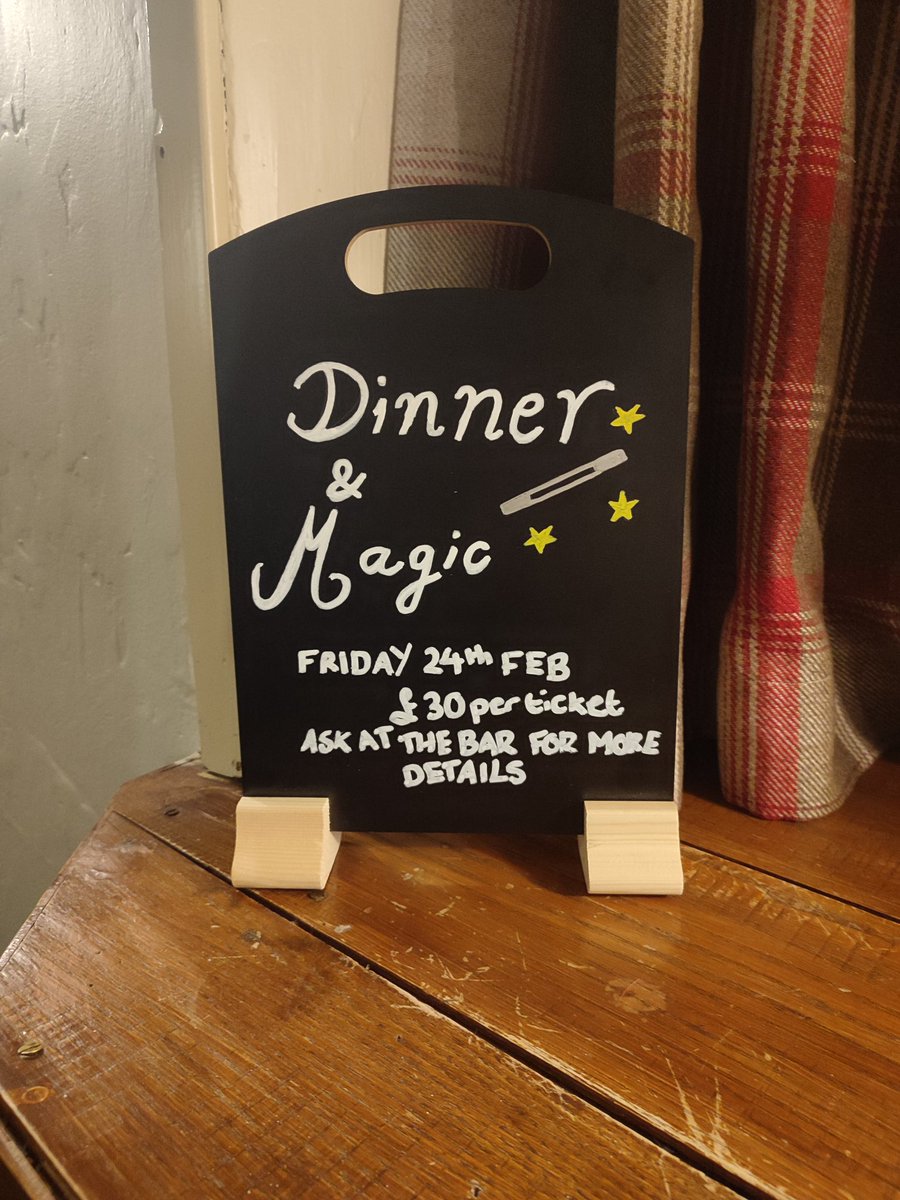 Dinner
&
Magic
FRIDAY 24th FEB
£30 per ticket
ASK AT THE BAR FOR MORE
DETAILS